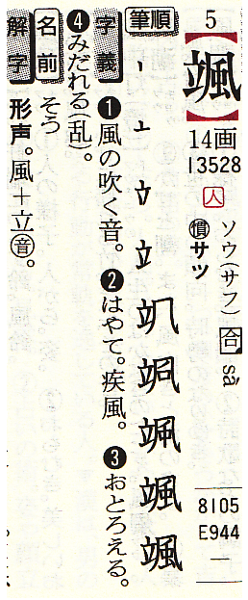 5
【颯】
14画
13528
人
ソウ(サフ)合 sà
慣サッ
8105
E944
—
筆順
字義 ❶風の吹く音。❷はやて。疾風。❸おとろえる。
❹みだれる(乱)。
名前 そう
解字
形声。風＋立音。